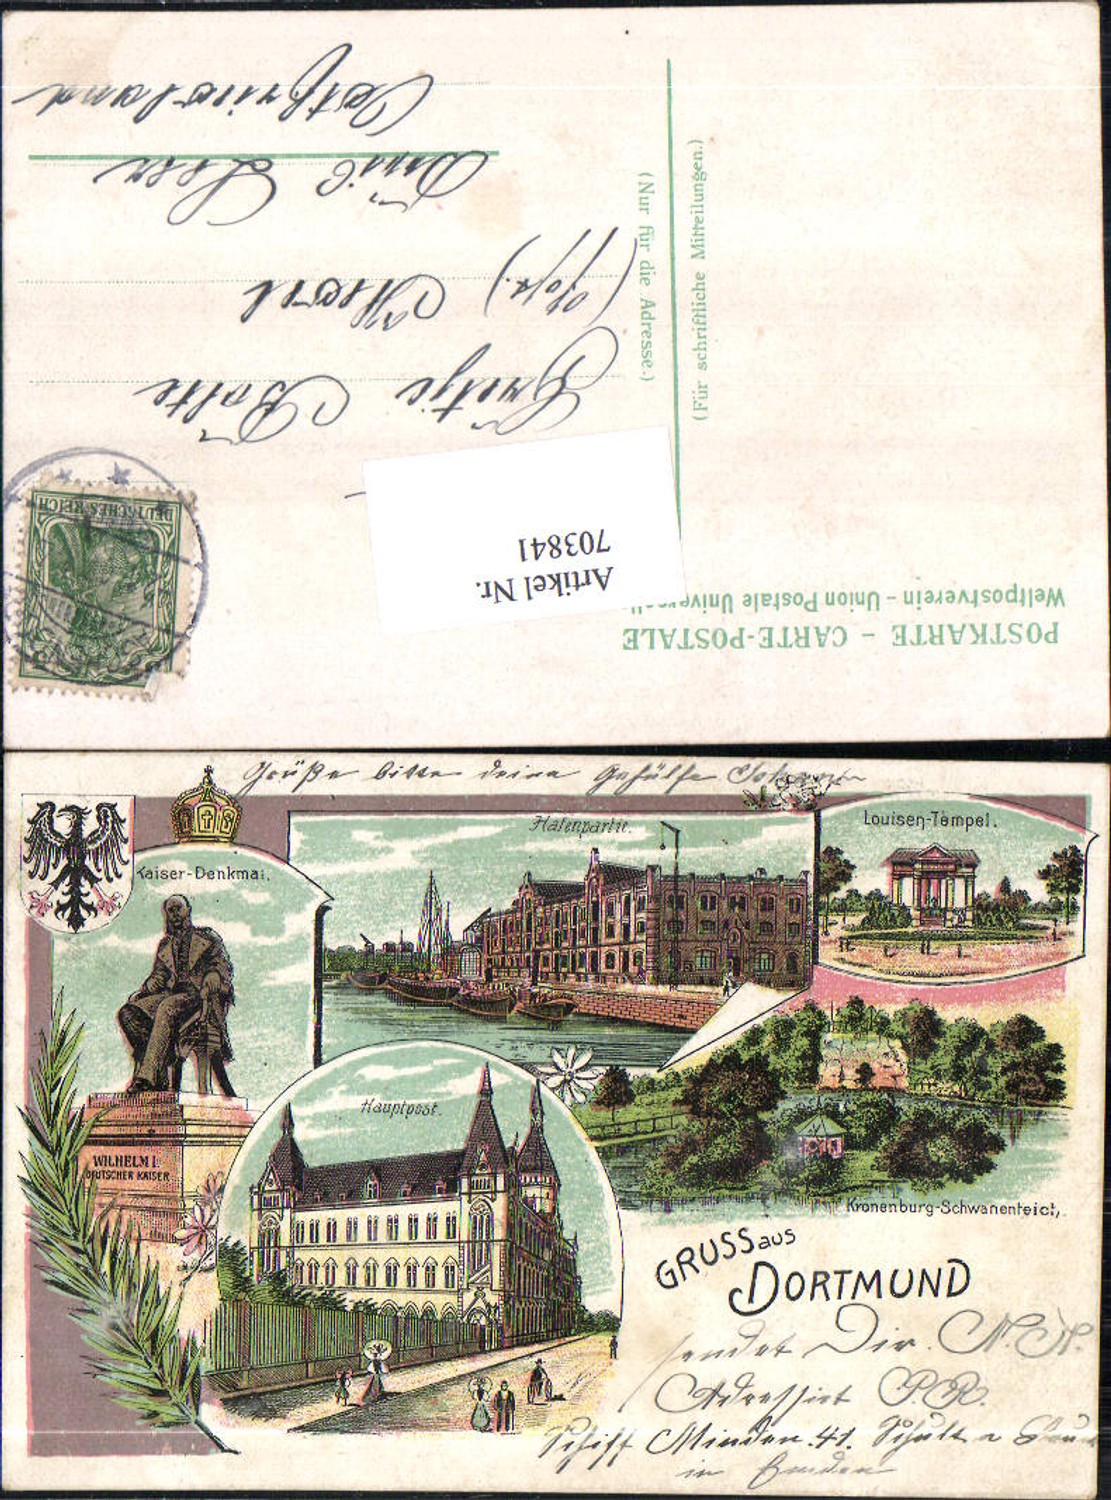 POSTKARTE – CARTE-POSTALE
Weltpostverein – Union Postale Universelle
Artikel Nr.
703841
DEUTSCHES REICH
(Für schriftliche Mitteilungen.)
(Nur für die Adresse.)
Grietje Bolte
Moorl
Leer
Ostfriesland
Grüße bitte deine Gehülfe
Kaiser-Denkmal.
Hafenpartie.
Louisen-Tempel.
WILHELM I.
DEUTSCHER KAISER
Hauptpost.
Kronenburg-Schwanenteich,
GRUSS aus
DORTMUND
sendet Dir
Adressirt P.R.
Schiff Minden 41. Schult
in Emden